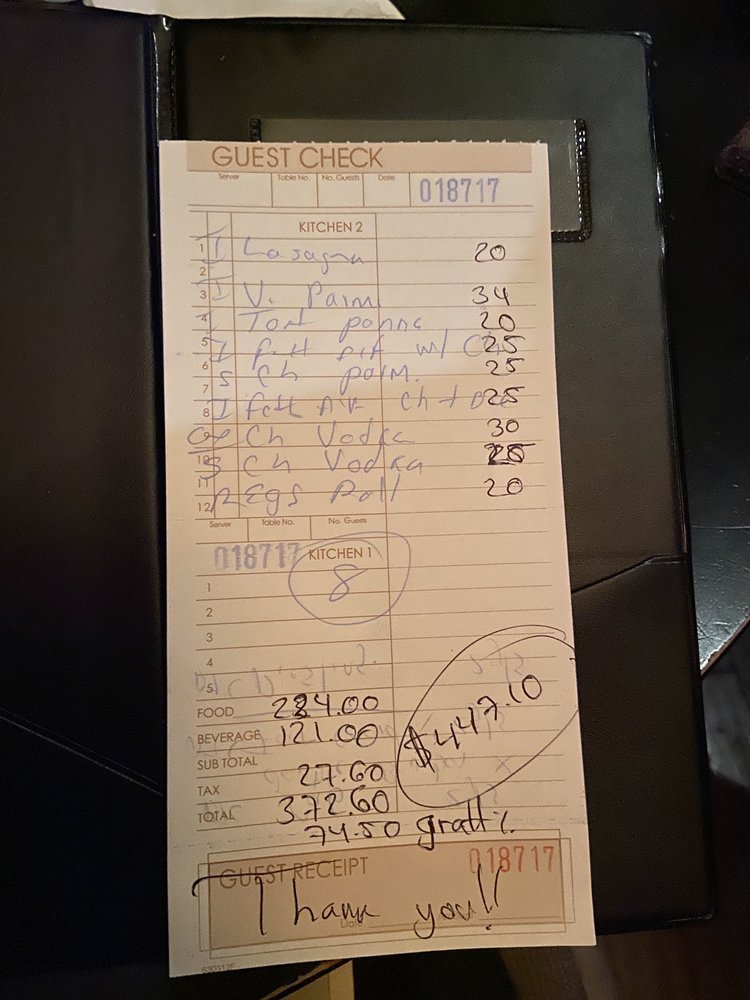 GUEST CHECK
Server Table No. No. Guests Date 018717
KITCHEN 2
1 1 Lasagna 20
2
3 1 V. Parm 34
4 Tort panna 20
5 1 fett Alf w/ Ch 25
6 S Ch parm. 25
7
8 1 fett Alf Ch + 25
9 Ch Vodka 30
10 S Ch Vodka 25
11
12 Regs Poll 20
Server Table No. No. Guests
018717 KITCHEN 1
8
1
2
3
4
5
FOOD 224.00
BEVERAGE 121.00
SUB TOTAL
TAX 27.60
TOTAL 372.60
$447.10
74.50 gratt %
GUEST RECEIPT 018717
Thank you!!
Date